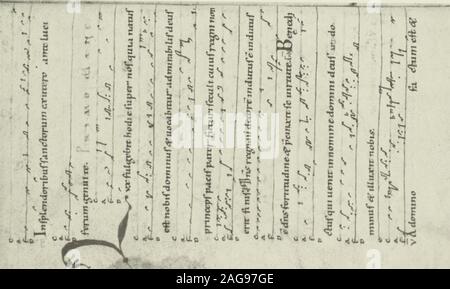 In splendoribus sanctorum ex utero ante luci
ferum genui te.
Lux fulgebit hodie super nos quia natus
est nobis dominus & uocabitur admirabilis deus
princeps pacis pater futuri seculi cuius regni non
erit finis. regnauit decore indutus ē indutus
dns fortitudine & se uirtute. Benedi
ctus qui uenit in nomine domini deus do
minus & illuxit nobis.
V A domino fa ctum est &
2AG97GE